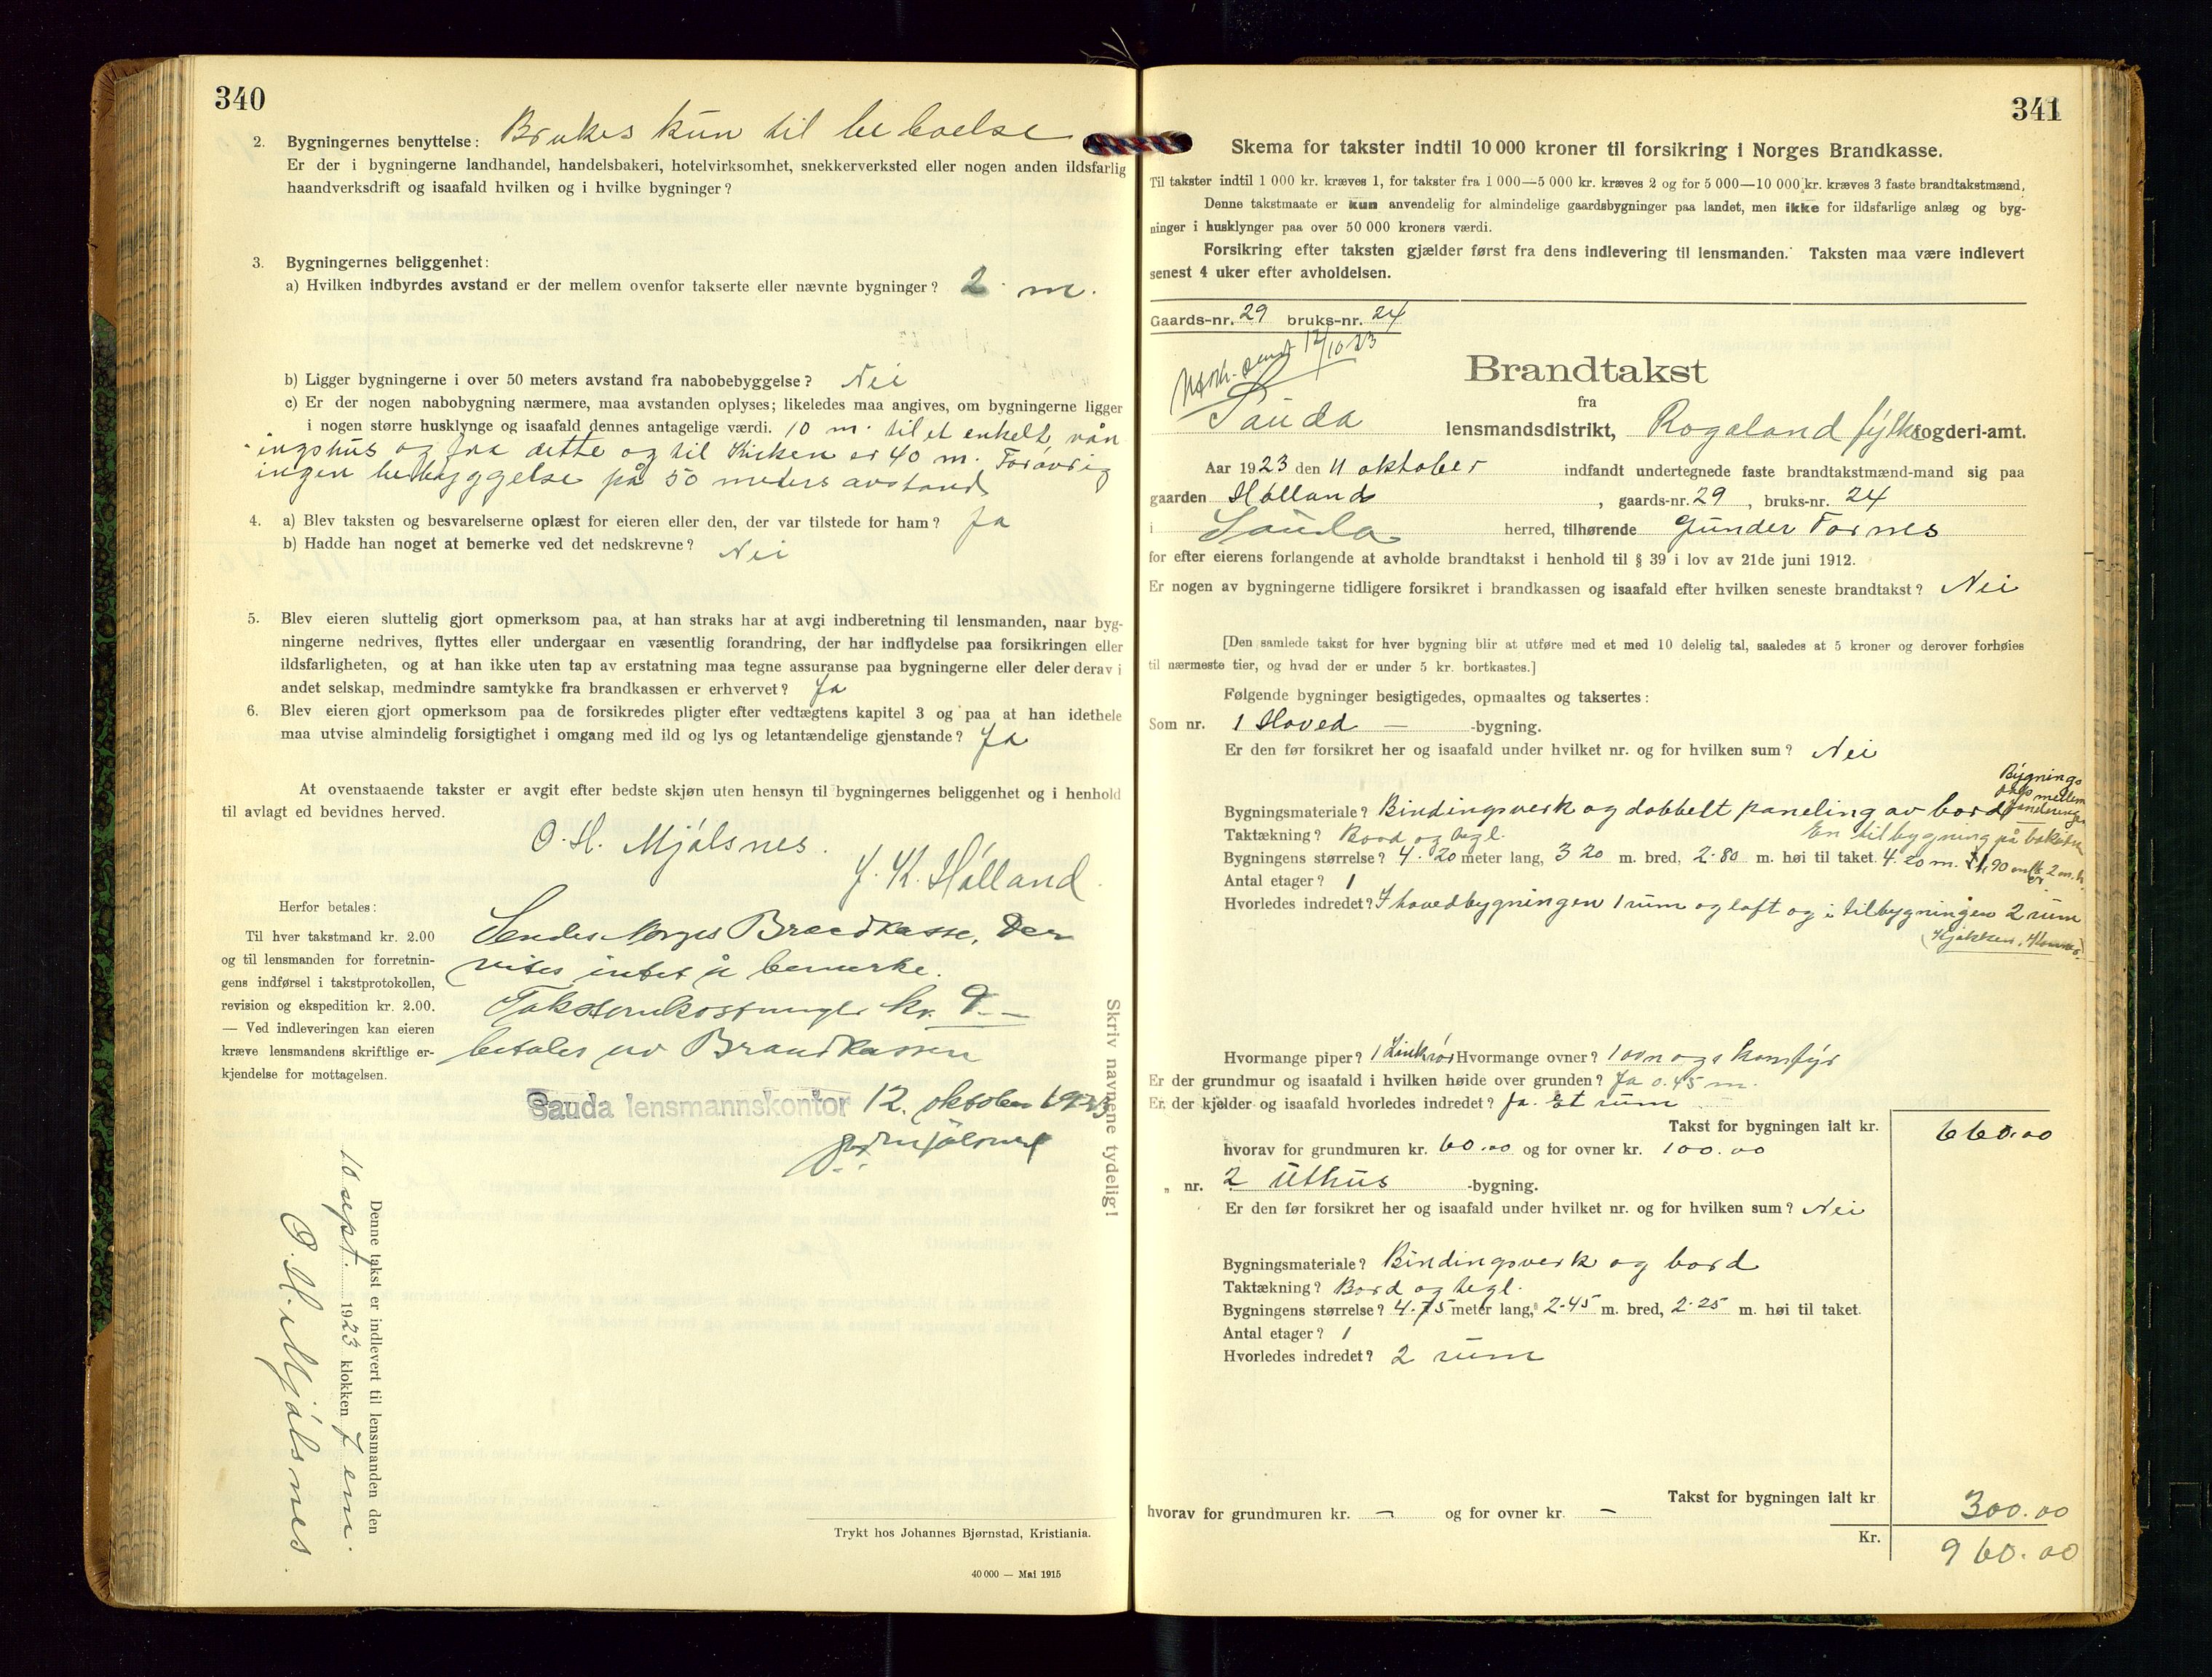 340
2. Bygningernes benyttelse: Brukes kun til beboelse
Er der i bygningerne landhandel, handelsbakeri, hotelvirksomhet, snekkerverksted eller nogen anden ildsfarlig
haandverksdrift og isaafald hvilken og i hvilke bygninger?
3. Bygningernes beliggenhet:
a) Hvilken indbyrdes avstand er der mellem ovenfor takserte eller nævnte bygninger? 2 m.
b) Ligger bygningerne i over 50 meters avstand fra nabobebyggelse? Nei
c) Er der nogen nabobygning nærmere, maa avstanden oplyses; likeledes maa angives, om bygningerne ligger
i nogen større husklynge og isaafald dennes antagelige værdi. 10 m. til et enkelt vån
ingshus og fra dette og til Kirken er 40 m. Forøvrig
ingen bebyggelse på 50 meters avstand
4. a) Blev taksten og besvarelserne oplæst for eieren eller den, der var tilstede for ham? Ja
b) Hadde han noget at bemerke ved det nedskrevne? Nei
5. Blev eieren sluttelig gjort opmerksom paa, at han straks har at avgi indberetning til lensmanden, naar byg-
ningerne nedrives, flyttes eller undergaar en væsentlig forandring, der har indflydelse paa forsikringen eller
ildsfarligheten, og at han ikke uten tap av erstatning maa tegne assuranse paa bygningerne eller deler derav i
andet selskap, medmindre samtykke fra brandkassen er erhvervet? Ja
6. Blev eieren gjort opmerksom paa de forsikredes pligter efter vedtægtens kapitel 3 og paa at han idethele
maa utvise almindelig forsigtighet i omgang med ild og lys og letantændelige gjenstande? Ja
At ovenstaaende takster er avgit efter bedste skjøn uten hensyn til bygningernes beliggenhet og i henhold
til avlagt ed bevidnes herved.
O. H. Mjålsnes.
J. K. Hålland.
Herfor betales:
Til hver takstmand kr. 2.00
og til lensmanden for forretnin-
gens indførsel i takstprotokollen,
revision og ekspedition kr. 2.00.
— Ved indleveringen kan eieren
kræve lensmandens skriftlige er-
kjendelse for mottagelsen.
Sendes Norges Brandkasse. Der
vites intet å bemerke.
Takstomkostninger kr. 9.—
betales av Brandkassen
Sauda lensmannskontor 12. oktober 1923
Skriv navnene tydelig!
Denne takst er indlevert til lensmanden den
10 sept. 1923 klokken 7 em.
O. H. Mjålsnes.
Trykt hos Johannes Bjørnstad, Kristiania.
40 000 — Mai 1915
341
Skema for takster indtil 10 000 kroner til forsikring i Norges Brandkasse.
Til takster indtil 1 000 kr. kræves 1, for takster fra 1 000—5 000 kr. kræves 2 og for 5 000—10 000 kr. kræves 3 faste brandtakstmænd.
Denne takstmaate er kun anvendelig for almindelige gaardsbygninger paa landet, men ikke for ildsfarlige anlæg og byg-
ninger i husklynger paa over 50 000 kroners værdi.
Forsikring efter taksten gjælder først fra dens indlevering til lensmanden. Taksten maa være indlevert
senest 4 uker efter avholdelsen.
Gaards-nr. 29 bruks-nr. 24
sendt 12/10 23
Brandtakst
fra
Sauda lensmandsdistrikt, Rogaland fylke fogderi-amt.
Aar 1923 den 11 oktober indfandt undertegnede faste brandtakstmænd-mand sig paa
gaarden Hålland, gaards-nr. 29, bruks-nr. 24
i Sauda herred, tilhørende Gunder Fornes
for efter eierens forlangende at avholde brandtakst i henhold til § 39 i lov av 21de juni 1912.
Er nogen av bygningerne tidligere forsikret i brandkassen og isaafald efter hvilken seneste brandtakst? Nei
[Den samlede takst for hver bygning blir at utføre med et med 10 delelig tal, saaledes at 5 kroner og derover forhøies
til nærmeste tier, og hvad der er under 5 kr. bortkastes.]
Følgende bygninger besigtigedes, opmaaltes og taksertes:
Som nr. 1 Hoved — -bygning.
Er den før forsikret her og isaafald under hvilket nr. og for hvilken sum? Nei
Bygnings
mellem
Bygningsmateriale? Bindingsverk og dobbelt paneling av bord
Taktækning? Bord og tegl. En tilbygning på baksiden
Bygningens størrelse? 4.20 meter lang, 3 20 m. bred, 2.80 m. høi til taket. 4.20 m.
Antal etager? 1
Hvorledes indredet? I hovedbygningen 1 rum og loft og i tilbygningen 2 rum
Hvormange piper? 1 Zinkrør Hvormange ovner? 1 ovn og 1 komfyr
Er der grundmur og isaafald i hvilken høide over grunden? Ja 0.45 m.
Er der kjelder og isaafald hvorledes indredet? Ja. Et rum
Takst for bygningen ialt kr. 660.00
hvorav for grundmuren kr. 60.00 og for ovner kr. 100.00
„ nr. 2 Uthus -bygning.
Er den før forsikret her og isaafald under hvilket nr. og for hvilken sum? Nei
Bygningsmateriale? Bindingsverk og bord
Taktækning? Bord og tegl.
Bygningens størrelse? 4.75 meter lang, 2.45 m. bred, 2.25 m. høi til taket.
Antal etager? 1
Hvorledes indredet? 2 rum
Takst for bygningen ialt kr 300.00
hvorav for grundmuren kr. — og for ovner kr. —
Kr. 960.00